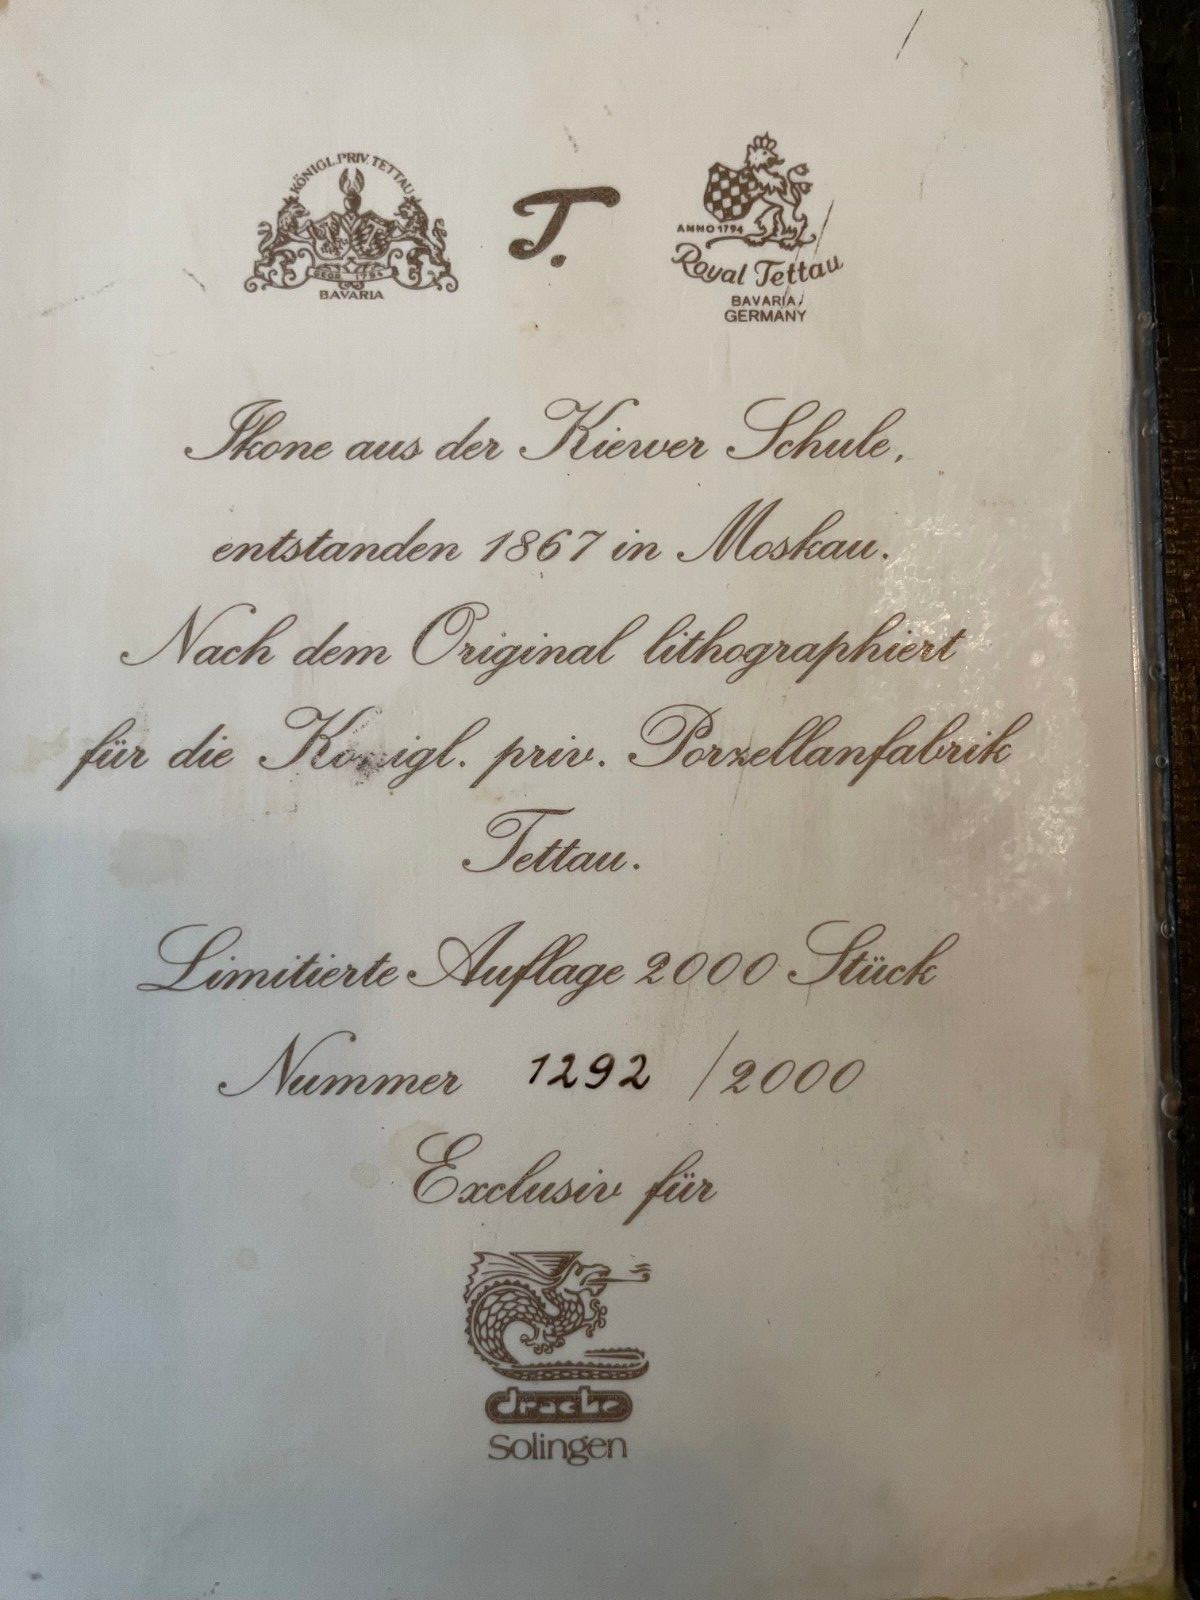 KÖNIGL. PRIV. TETTAU
BAVARIA
T.
ANNO 1794
Royal Tettau
BAVARIA
GERMANY
Ikone aus der Kiewer Schule,
entstanden 1867 in Moskau.
Nach dem Original lithographiert
für die Königl. priv. Porzellanfabrik
Tettau.
Limitierte Auflage 2000 Stück
Nummer 1292 /2000
Exclusiv für
dracke
Solingen